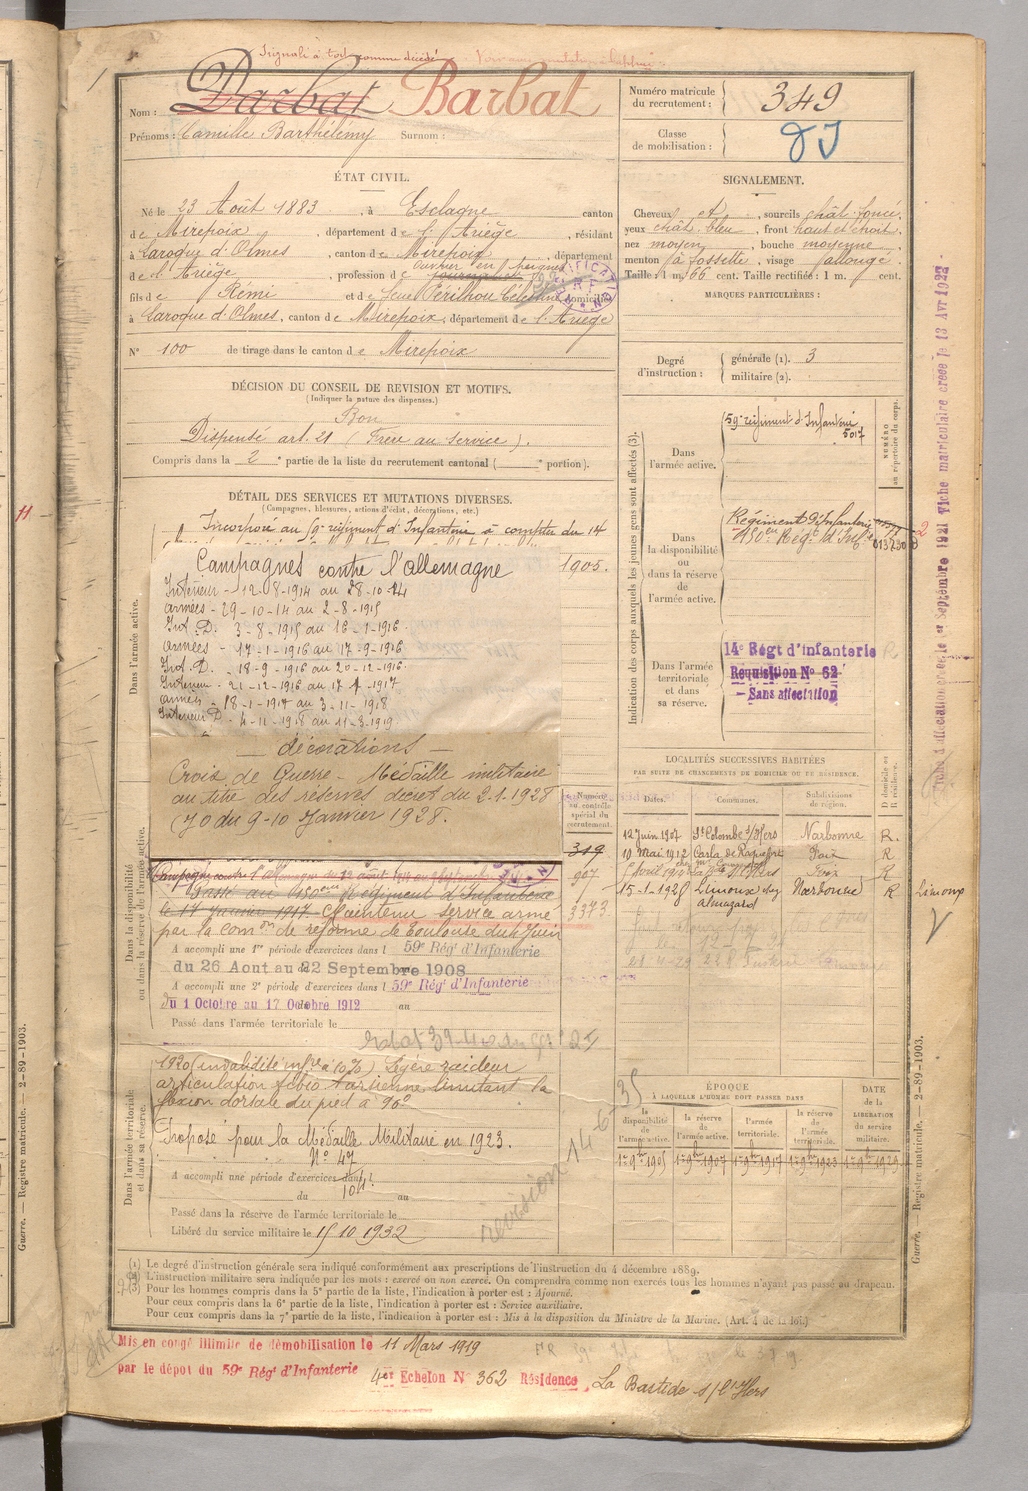 Signalé à tort comme décédé
Nom : Darbat Barbat
Prénoms : Camille Barthélémy Surnom :
Numéro matricule du recrutement : 349
Classe de mobilisation :
ÉTAT CIVIL.
Né le 23 Août 1883, à Esclagne canton
de Mirepoix, département de l'Ariège, résidant
à Laroque d'Olmes, canton de Mirepoix, département
de l'Ariège, profession de
fils de Rémi et de feue Périlhou Célestine domiciliés
à Laroque d'Olmes, canton de Mirepoix, département de l'Ariège
N° 100 de tirage dans le canton de Mirepoix
SIGNALEMENT.
Cheveux et , sourcils chât. foncé,
yeux chât. bleu, front haut et étroit,
nez moyen, bouche moyenne,
menton à fossette, visage allongé.
Taille : 1 m. 66 cent. Taille rectifiée : 1 m. cent.
MARQUES PARTICULIÈRES :
Degré d'instruction : générale (1). 3
militaire (2).
DÉCISION DU CONSEIL DE REVISION ET MOTIFS.
(Indiquer la nature des dispenses.)
Bon
Dispensé art. 21 (Frère au service).
Compris dans la 2e partie de la liste du recrutement cantonal ( e portion).
DÉTAIL DES SERVICES ET MUTATIONS DIVERSES.
(Campagnes, blessures, actions d'éclat, décorations, etc.)
Incorporé au 59e régiment d'Infanterie à compter du 14
1905.
Dans l'armée active.
Campagnes contre l'allemagne
Intérieur - 12-8-1914 au 28-10-14
armées - 29-10-14 au 2-8-1915
Int. D. 3-8-1915 au 16-1-1916
armées - 17-1-1916 au 17-9-1916
Int. D. - 18-9-1916 au 20-12-1916
Intérieur - 21-12-1916 au 17-1-1917
armées - 18-1-1917 au 3-11-1918
Intérieur D - 4-11-1918 au 11-3-1919
— décorations —
Croix de Guerre - Médaille militaire
au titre des réserves décret du 2-1-1928
(JO du 9-10 Janvier 1928.
Dans la disponibilité ou dans la réserve de l'armée active.
Passé au 150ème Régiment d'Infanterie
le 17 Janvier 1917. Maintenu service armé
par la com on de réforme de Toulouse du 4 Juin
A accompli une 1re période d'exercices dans l 59e Rég' d'Infanterie
du 26 Aout au 22 Septembre 1908
A accompli une 2e période d'exercices dans l 59e Rég' d'Infanterie
du 1 Octobre au 17 Octobre 1912 au
Passé dans l'armée territoriale le
Dans l'armée territoriale et dans sa réserve.
1920 (invalidité infre à 10%) Légère raideur
articulation tibio tarsienne limitant la
flexion dorsale du pied à 90°
Proposé pour la Médaille Militaire en 1923.
N° 47
A accompli une période d'exercices dans l
du au
Passé dans la réserve de l'armée territoriale le
Libéré du service militaire le 15 10 1932
revision 14-6-35
Numéro au contrôle spécial du recrutement.
319
907
3373
Indication des corps auxquels les jeunes gens sont affectés (3).
NUMÉRO au répertoire du corps.
Dans l'armée active. 59e régiment d'Infanterie
5017
Dans la disponibilité ou dans la réserve de l'armée active. Régiment d'Infanterie
150ème Reg' d'Infie
Dans l'armée territoriale et dans sa réserve. 14e Régt d'infanterie
Requisition N° 62
— Sans affectation
LOCALITÉS SUCCESSIVES HABITÉES
PAR SUITE DE CHANGEMENTS DE DOMICILE OU DE RÉSIDENCE.
Dates. Communes. Subdivisions de région. D domicile ou R résidence.
12 Juin 1907 Ste Colombe s/Hers Narbonne R.
10 Mai 1912 Carla de Roquefort Foix R
Foix R
15-1-1928 Limoux Narbonne R Limoux
ÉPOQUE
À LAQUELLE L'HOMME DOIT PASSER DANS
la disponibilité de l'armée active. la réserve de l'armée active. l'armée territoriale. la réserve de l'armée territoriale. DATE de la LIBÉRATION du service militaire.
1er 9bre 1905 1er 9bre 1907 1er 9bre 1917 1er 9bre 1923 1er 9bre 1929
(1) Le degré d'instruction générale sera indiqué conformément aux prescriptions de l'instruction du 4 décembre 1889.
(2) L'instruction militaire sera indiquée par les mots : exercé ou non exercé. On comprendra comme non exercés tous les hommes n'ayant pas passé au drapeau.
(3) Pour les hommes compris dans la 5e partie de la liste, l'indication à porter est : Ajourné.
Pour ceux compris dans la 6e partie de la liste, l'indication à porter est : Service auxiliaire.
Pour ceux compris dans la 7e partie de la liste, l'indication à porter est : Mis à la disposition du Ministre de la Marine. (Art. 4 de la loi.)
Mis en congé illimité de démobilisation le 11 Mars 1919
par le dépôt du 59e Rég' d'Infanterie 4er Echelon N° 362 Résidence, La Bastide s/ l'Hers
Guerre. — Registre matricule. — 2-89-1903.
Guerre. — Registre matricule. — 2-89-1903.
Fiche d'affectation créée le 1er Septembre 1921 Fiche matriculaire créée le 13 Avr 1922 -